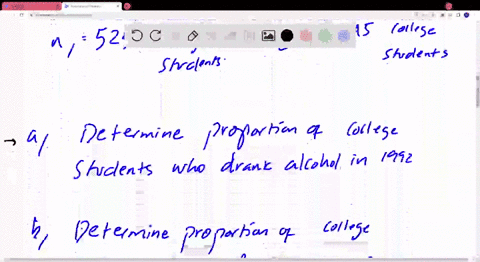 n₁ = 52 15 college
Students. Students
→ a, Determine proportion of college
Students who drank alcohol in 1992
b, Determine proportion of college